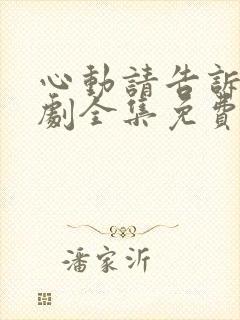 心動請告訴
劇全集免費
潘家沂